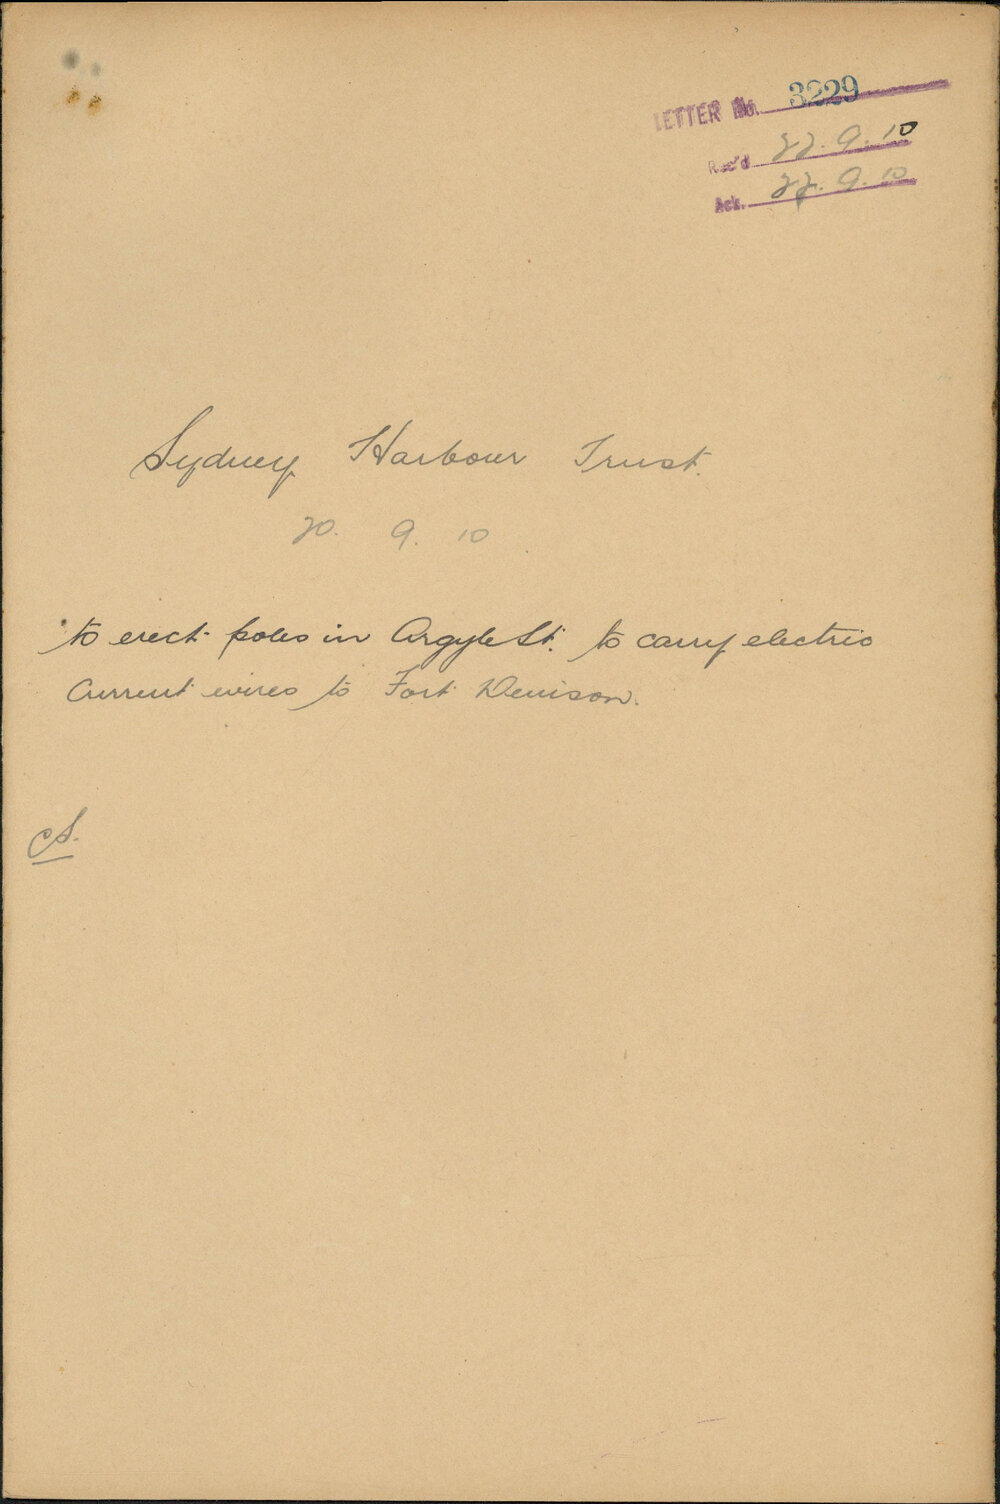 LETTER No. 3229
Rec'd 22.9.10
Ack. 22.9.10
Sydney Harbour Trust.
20. 9. 10
to erect poles in Argyle St. to carry electric
Current wires to Fort Denison.
CS.